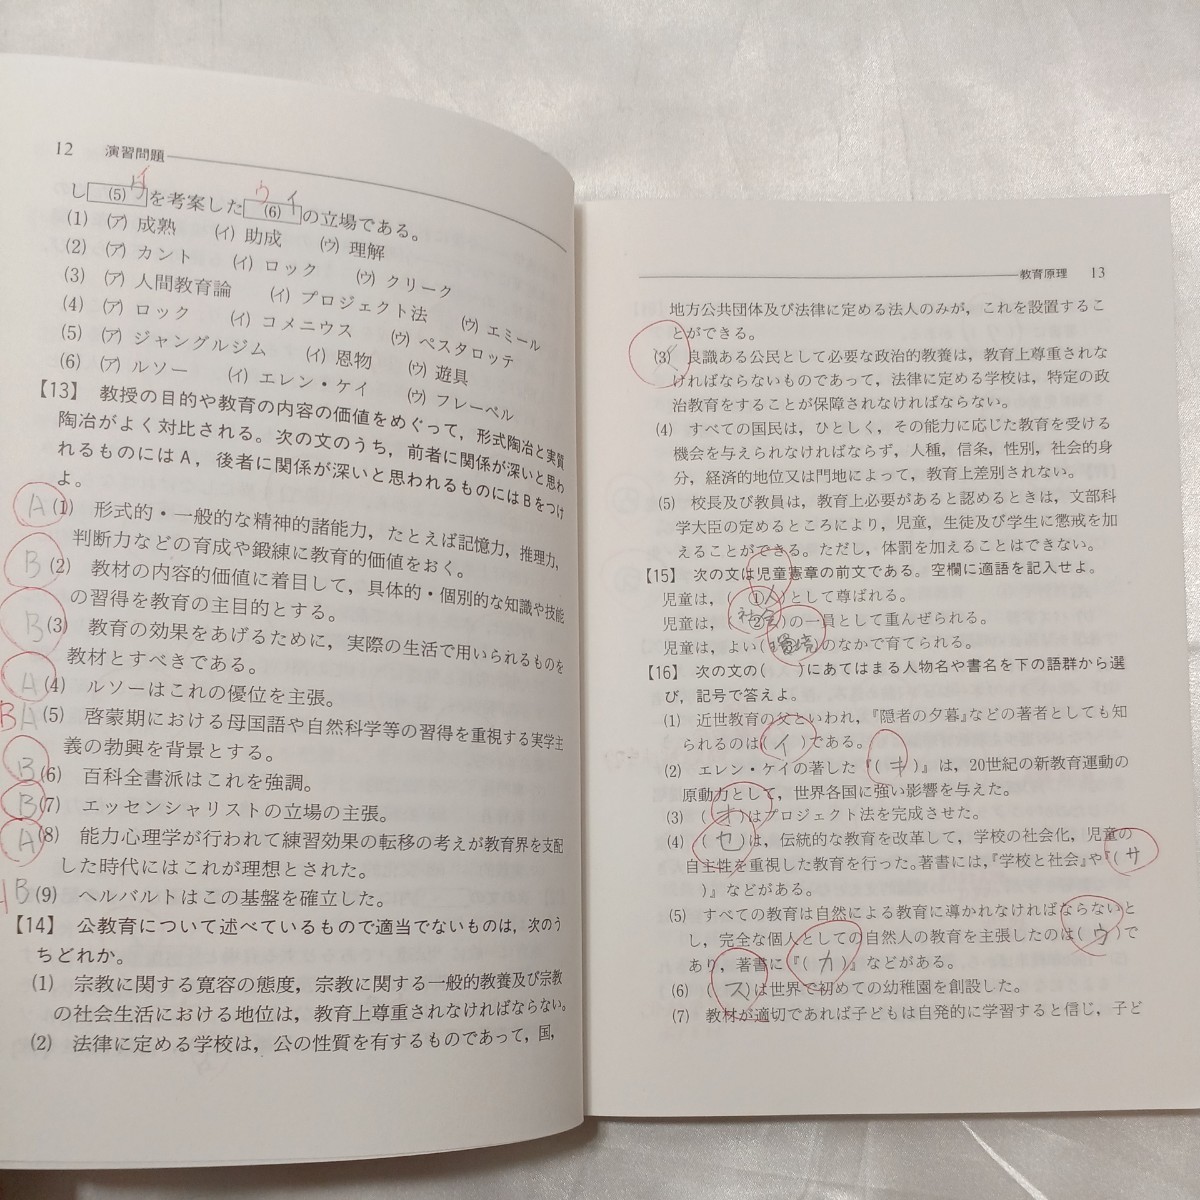 12 演習問題
し (5) を考案した (6) の立場である。
(1) (ア) 成熟 (イ) 助成 (ウ) 理解
(2) (ア) カント (イ) ロック (ウ) クリーク
(3) (ア) 人間教育論 (イ) プロジェクト法 (ウ) エミール
(4) (ア) ロック (イ) コメニウス (ウ) ペスタロッテ
(5) (ア) ジャングルジム (イ) 恩物 (ウ) 遊具
(6) (ア) ルソー (イ) エレン・ケイ (ウ) フレーベル
【13】 教授の目的や教育の内容の価値をめぐって，形式陶冶と実質
陶冶がよく対比される。次の文のうち，前者に関係が深いと思わ
れるものにはA，後者に関係が深いと思われるものにはBをつけ
よ。
A (1) 形式的・一般的な精神的諸能力，たとえば記憶力，推理力，
判断力などの育成や鍛練に教育的価値をおく。
B (2) 教材の内容的価値に着目して，具体的・個別的な知識や技能
の習得を教育の主目的とする。
B (3) 教育の効果をあげるために，実際の生活で用いられるものを
教材とすべきである。
A (4) ルソーはこれの優位を主張。
B A (5) 啓蒙期における母国語や自然科学等の習得を重視する実学主
義の勃興を背景とする。
B (6) 百科全書派はこれを強調。
B (7) エッセンシャリストの立場の主張。
A (8) 能力心理学が行われて練習効果の転移の考えが教育界を支配
した時代にはこれが理想とされた。
B (9) ヘルバルトはこの基盤を確立した。
【14】 公教育について述べているもので適当でないものは，次のう
ちどれか。
(1) 宗教に関する寛容の態度，宗教に関する一般的教養及び宗教
の社会生活における地位は，教育上尊重されなければならない。
(2) 法律に定める学校は，公の性質を有するものであって，国，
教育原理 13
地方公共団体及び法律に定める法人のみが，これを設置するこ
とができる。
(3) 良識ある公民として必要な政治的教養は，教育上尊重されな
ければならないものであって，法律に定める学校は，特定の政
治教育をすることが保障されなければならない。
(4) すべての国民は，ひとしく，その能力に応じた教育を受ける
機会を与えられなければならず，人種，信条，性別，社会的身
分，経済的地位又は門地によって，教育上差別されない。
(5) 校長及び教員は，教育上必要があると認めるときは，文部科
学大臣の定めるところにより，児童，生徒及び学生に懲戒を加
えることができる。ただし，体罰を加えることはできない。
【15】 次の文は児童憲章の前文である。空欄に適語を記入せよ。
児童は，( ①人 )として尊ばれる。
児童は，( 社会 )の一員として重んぜられる。
児童は，よい( 環境 )のなかで育てられる。
【16】 次の文の( )にあてはまる人物名や書名を下の語群から選
び，記号で答えよ。
(1) 近世教育の父といわれ，『隠者の夕暮』などの著者としても知
られるのは( イ )である。
(2) エレン・ケイの著した『( キ )』は，20世紀の新教育運動の
原動力として，世界各国に強い影響を与えた。
(3) ( オ )はプロジェクト法を完成させた。
(4) ( セ )は，伝統的な教育を改革して，学校の社会化，児童の
自主性を重視した教育を行った。著書には，『学校と社会』や『( サ
)』などがある。
(5) すべての教育は自然による教育に導かれなければならないと
し，完全な個人としての自然人の教育を主張したのは( ウ )で
あり，著書に『( カ )』などがある。
(6) ( ス )は世界で初めての幼稚園を創設した。
(7) 教材が適切であれば子どもは自発的に学習すると信じ，子ど